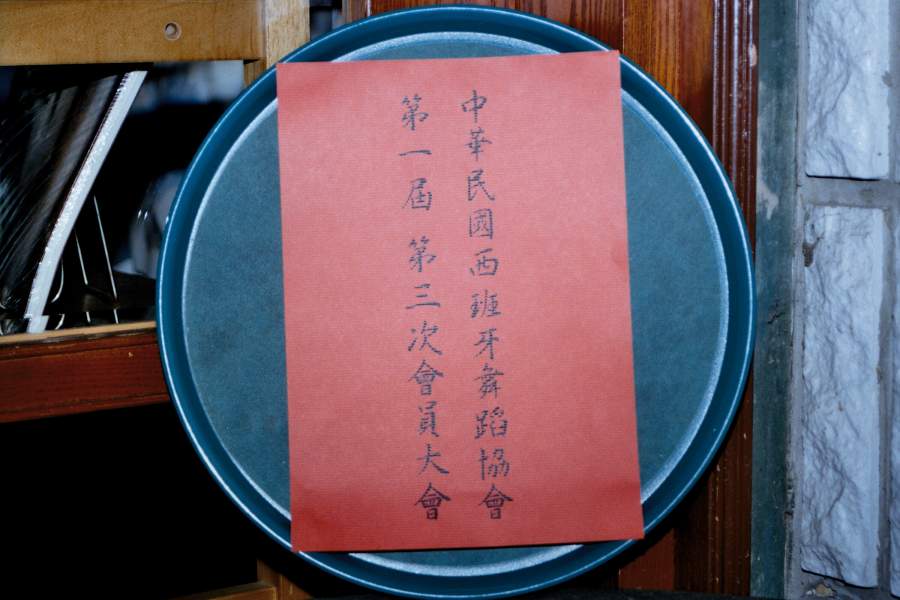 中華民國西班牙舞蹈協會
第一屆第三次會員大會